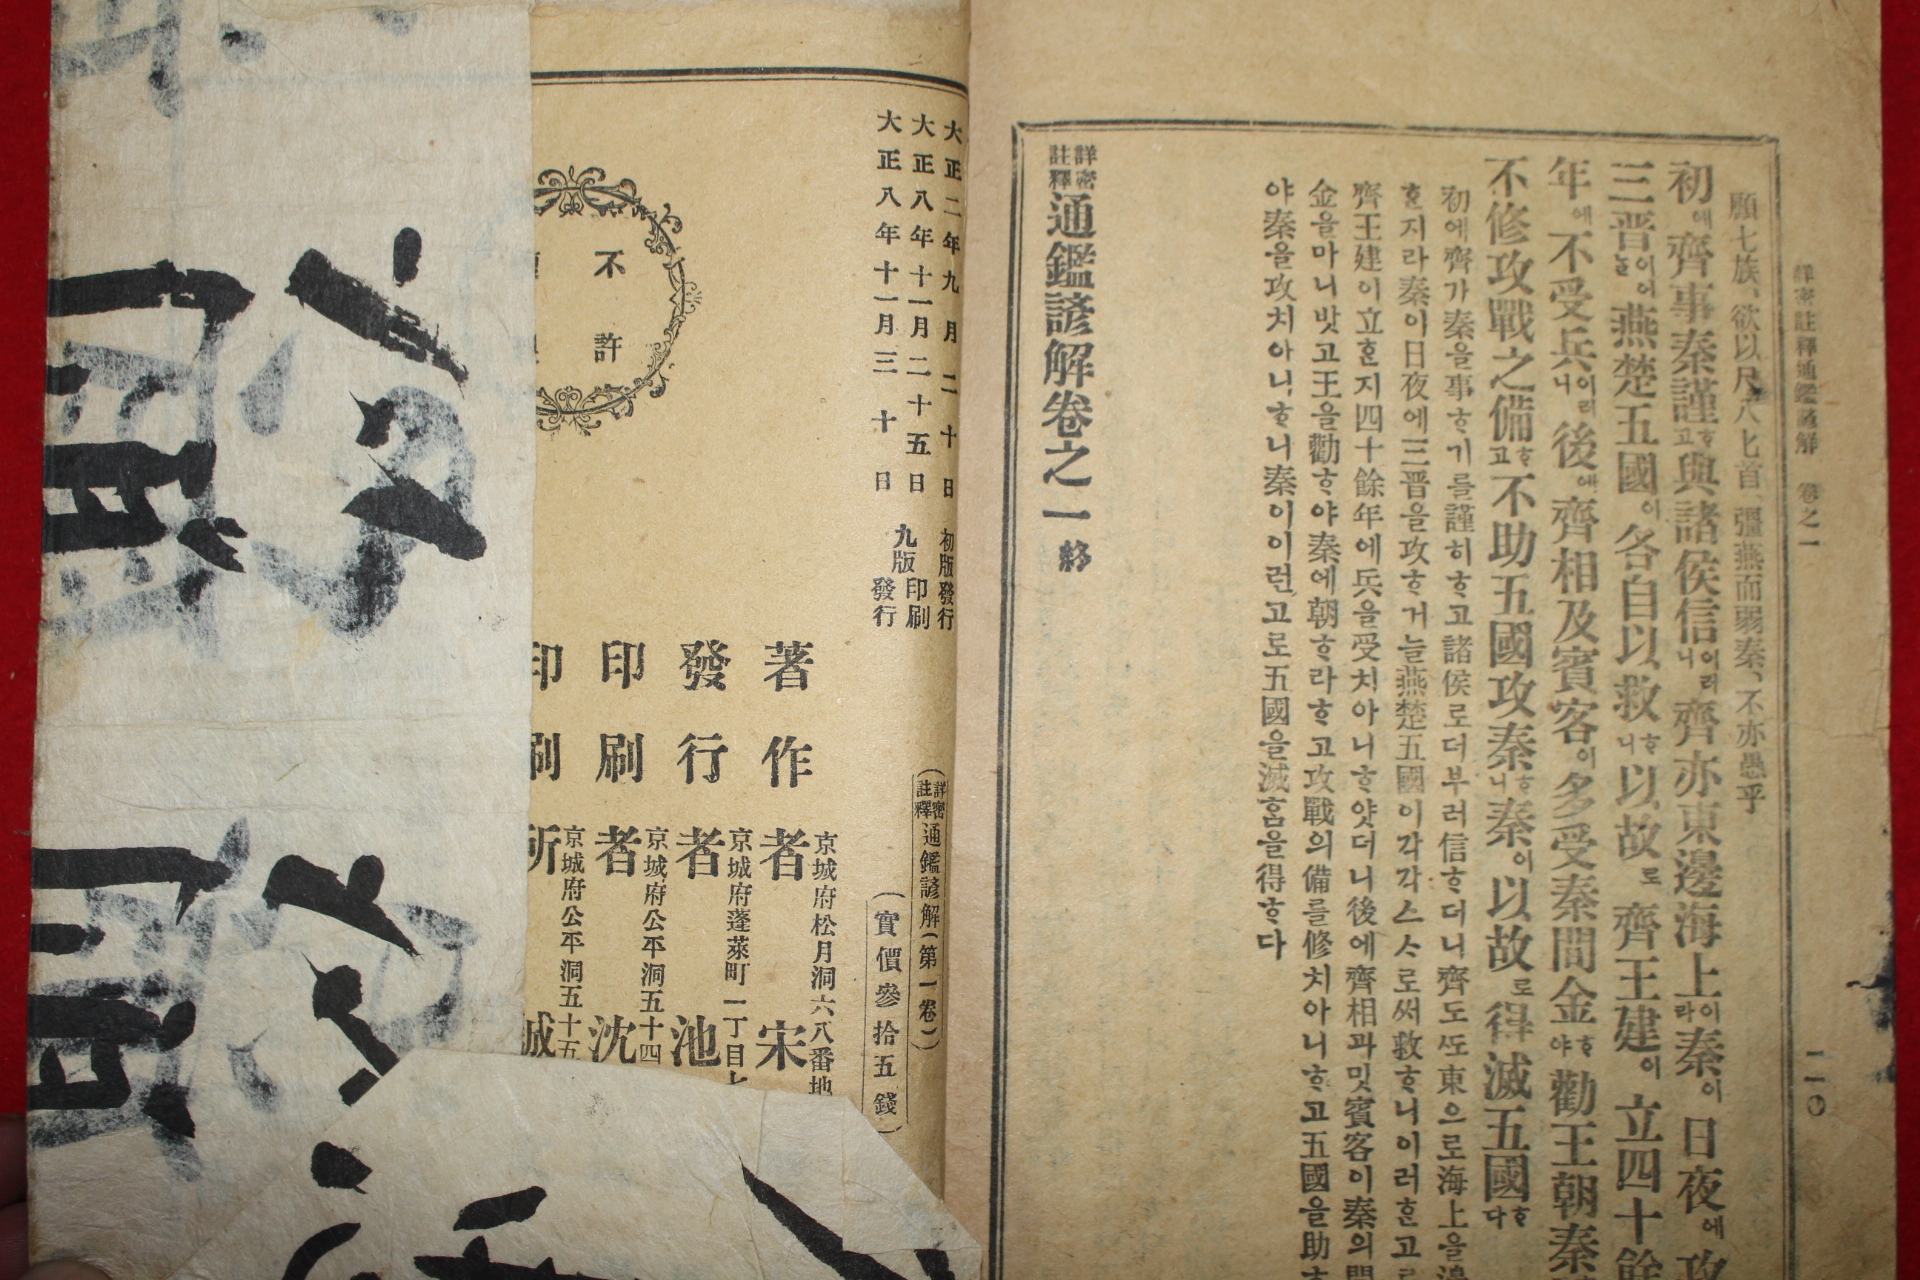 詳密註釋通鑑諺解 卷之一 二一〇
願七族、欲以尺八匕首、彊燕而弱秦、不亦愚乎
初에齊事秦謹ᄒᆞ고與諸侯信이러니齊亦東邊海上이라秦이日夜에攻
三晋이어ᄂᆞᆯ燕楚五國이各自以救ᄒᆞ니以故로齊王建이立四十餘
年에不受兵이러니後에齊相及賓客이多受秦間金ᄒᆞ야勸王朝秦
不修攻戰之備ᄒᆞ고不助五國攻秦ᄒᆞ니秦이以故로得滅五國ᄒᆞ다
初에齊가秦을事ᄒᆞ기를謹히ᄒᆞ고諸侯로더부러信ᄒᆞ더니齊도ᄯᅩ東으로海上을邊
ᄒᆞᆫ지라秦이日夜에三晋을攻ᄒᆞ거늘燕楚五國이각각스스로써救ᄒᆞ니이러ᄒᆞᆫ고로
齊王建이立ᄒᆞᆫ지四十餘年에兵을受치아니ᄒᆞ얏더니後에齊相과밋賓客이秦의間
金을마니밧고王을勸ᄒᆞ야秦에朝ᄒᆞ라ᄒᆞ고攻戰의備를修치아니ᄒᆞ고五國을助
야秦을攻치아니ᄒᆞ니秦이이런고로五國을滅ᄒᆞᆷ을得ᄒᆞ다
詳密註釋通鑑諺解卷之一 終
大正二年九月二十日 初版發行
大正八年十一月二十五日 九版印刷
大正八年十一月三十日 發行
詳密註釋通鑑諺解(第一卷)
(實價參拾五錢)
不許
京城府松月洞六八番地
著作者 宋
京城府蓬萊町一丁目七
發行者 池
京城府公平洞五十四
印刷者 沈
京城府公平洞五十五
印刷所 誠